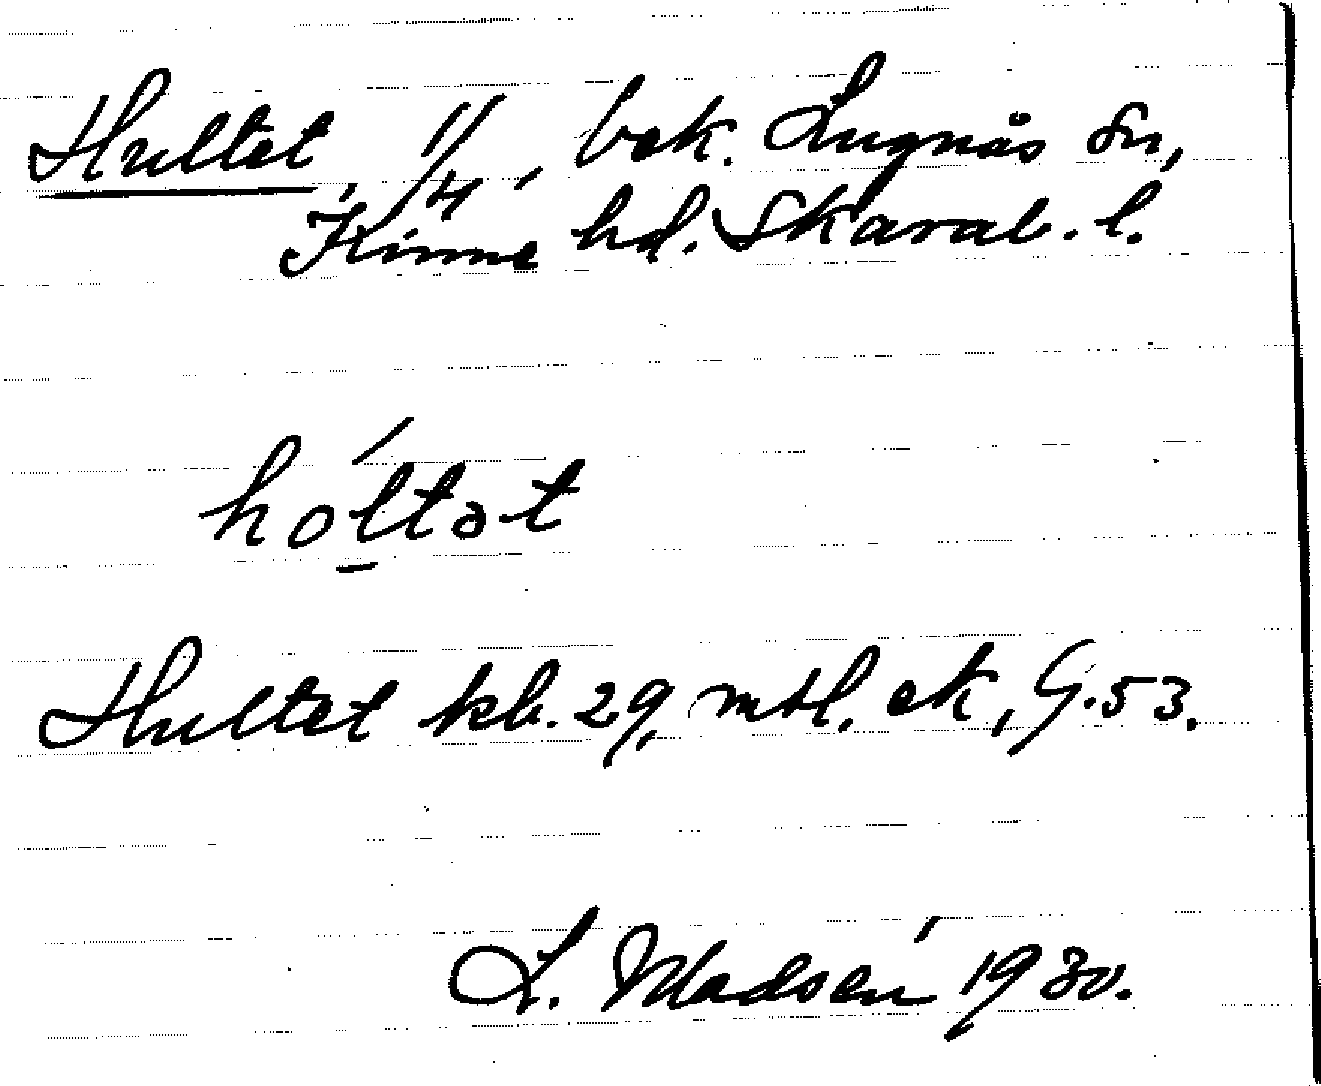 Hultet, 1/4, bek. Lugnås sn,
Kinne hd. Skarab. l.
hóltət
Hultet kb. 29, mtl, ek, G.53.
L. Madsén 1930.